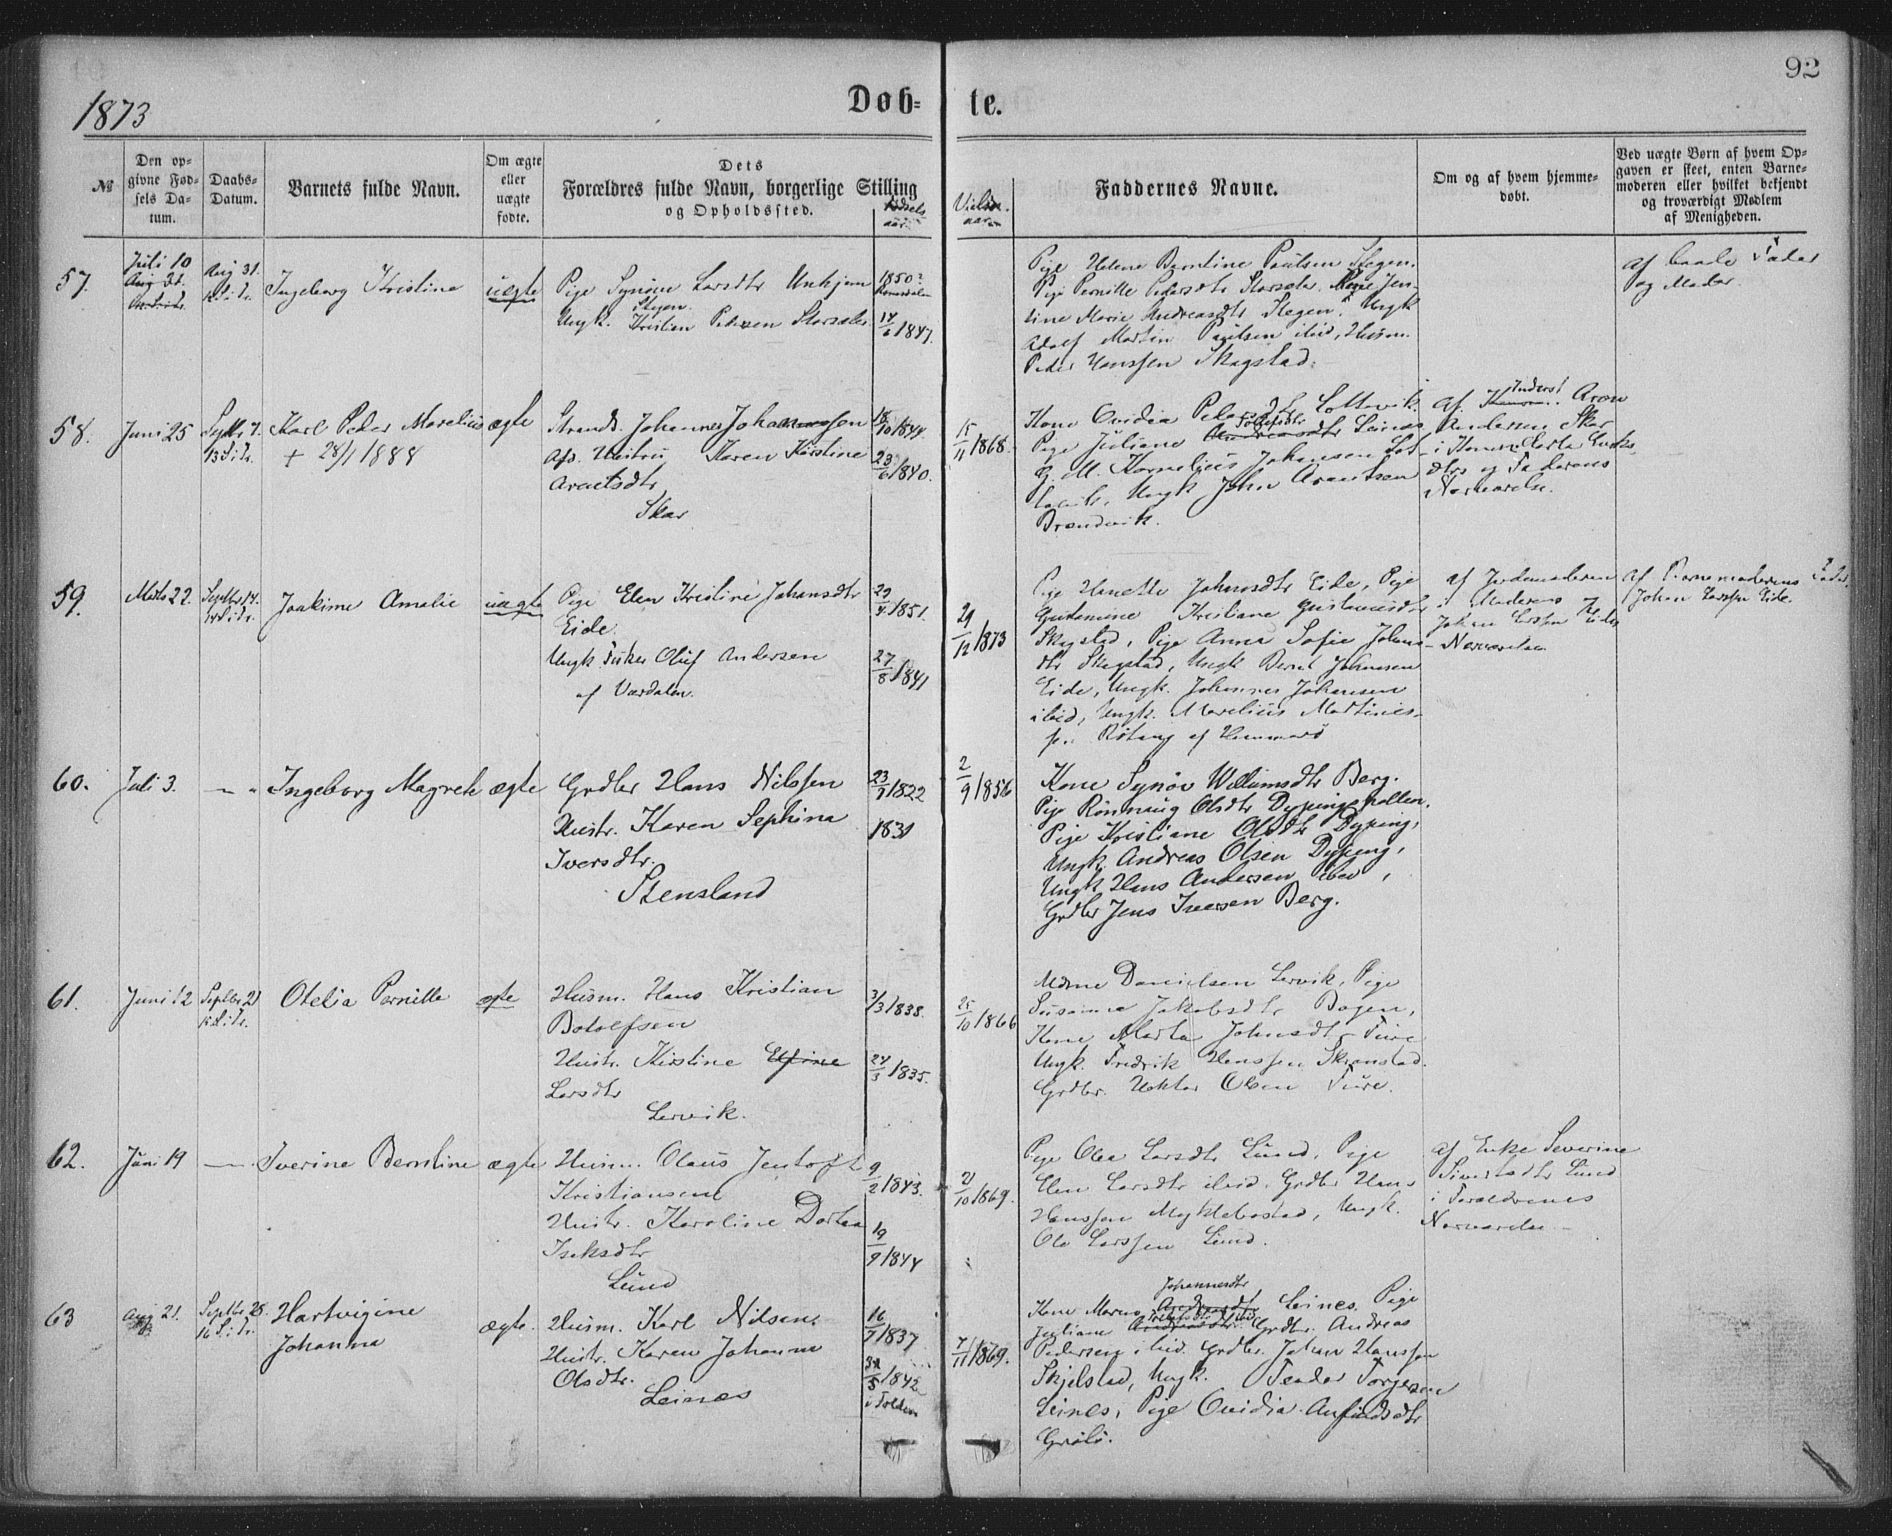 92
1873
Døb-
te.
№
Den op-
givne Fød-
sels Da-
tum.
Daabs-
Datum.
Barnets fulde Navn.
Om ægte
eller
uægte
fødte.
Dets
Forældres fulde Navn, borgerlige Stilling
og Opholdssted.
Fødsels
aar.
Vielses
aar
Faddernes Navne.
Om og af hvem hjemme-
døbt.
Ved uægte Børn af hvem Op-
gaven er skeet, enten Barne-
moderen eller hvilket bekjendt
og troværdigt Medlem
af Menigheden.
57.
Juli 10
Aug 31.
Ingeborg Kristine
uægte
Pige Synøve Larsdtr
Stegen
Ungk. Kristian Pedersen
1850?
14/6 1847.
Pige Helene Berntine Paulsen Stegen.
Pige Pernille Pedersdtr Jen-
sine Marie Andreasdtr Stegen. Ungk
Adolf Martin Paulsen ibid, Husm.
Peder Hanssen Skagstad.
af baade Fader
og Moder.
58.
Juni 25
Septbr 7.
13 S. i Tr.
Karl Peder Marelius
+ 28/1 1888
ægte
Strands. Johannes Johannessen
Hustru Karen Kirstine
Arntsdtr
Skar
18/10 1844
23/6 1840.
15/11 1868.
Kone Ovidia Pedersdtr
Pige Juliane Tollefsdtr Leines
G. M. Kornelius Johansen
Ungk John Arentsen
Brændvik.
Af Inderst Aron
Andersen Skar
og Faderens
Nærværelse.
59.
Marts 22.
Septbr 14.
14 S. i Tr.
Joakime Amalie
uægte
Pige Elen Kristine Johansdtr
Eide.
Ungk Fisker Oluf Andersen
af Værdalen.
29/4 1851.
27/8 1841
29/12 1873
Pige Hanette Johansdtr Eide, Pige
Kristiane Gustavusdtr
Skagstad, Pige Anna Sofie Johans-
dtr Skagstad, Ungk Bernt Johansen
Eide, Ungk. Johannes Johansen
ibid, Ungk. Marelius Martinus-
sn. Røtang af Hammerø
af Jordemoderen
i Moderens
Johan Larssen Eides
Nærværelse
Af Barnemoderens Fader
Johan Larssen Eide.
60.
Juli 3.
— „
Ingeborg Magrete
ægte
Grdbr Hans Nilssen
Hustr. Karen Sephina
Iversdtr.
Stensland
23/9 1822
1831
2/9 1856
Kone Synøv Willumsdtr Berg.
Pige Rønnaug Olsdtr Dypingspollen.
Pige Kristiane Olsdtr Dyping,
Ungk Andreas Olsen Dyping,
Ungk Hans Andersen ibid,
Grdbr Jens Iversen Berg.
61.
Juni 12
Septbr 21
15 S. i Tr.
Otelia Pernille
ægte
Husm. Hans Kristian
Botolfsen
Hustr. Kirstine Elfine
Larsdtr
Lervik.
3/3 1838.
24/3 1835.
25/10 1866
Mdme Danielsen Lervik, Pige
Susanna Jakobsdtr Bogen,
Kone Marta Johnsdtr Furre
Ungk. Fredrik Hanssen Skjønstad.
Grdbr. Hektor Olsen Furre.
62.
Juni 19
—
Iverine Berntine
ægte
Husm. Olaus Jentoft
Kristiansen
Hustr. Karoline Dortea
Isaksdtr
Lund
9/2 1843.
19/9 1844
21/10 1869.
Pige Olea Larsdtr Lund, Pige
Elen Larsdtr ibid. Grdbr Hans
Hanssen Myklebostad, Ungk.
Ole Larssen Lund.
Af Enke Severine
Sivertsdtr Lund
i Forældrenes
Nærværelse
63
Aug 21.
Septbr 28.
16 S. i Tr.
Hartvigine
Johanna
ægte.
Husm. Karl Nilsen
Hustr. Karen Johanna
Olsdtr.
Leines
16/7 1837
31/5 1842
i Folden
7/11 1869.
Johannesdtr
Kone Maren Andreasdtr Leines. Pige
Juliane Andreasdtr. Grdbr. Andreas
Pedersen ibid. Grdbr. Johan Hanssen
Skjelstad, Ungk. Teodor Torgersen
Leines, Pige Ovidia Anfindsdtr
Grøtø.